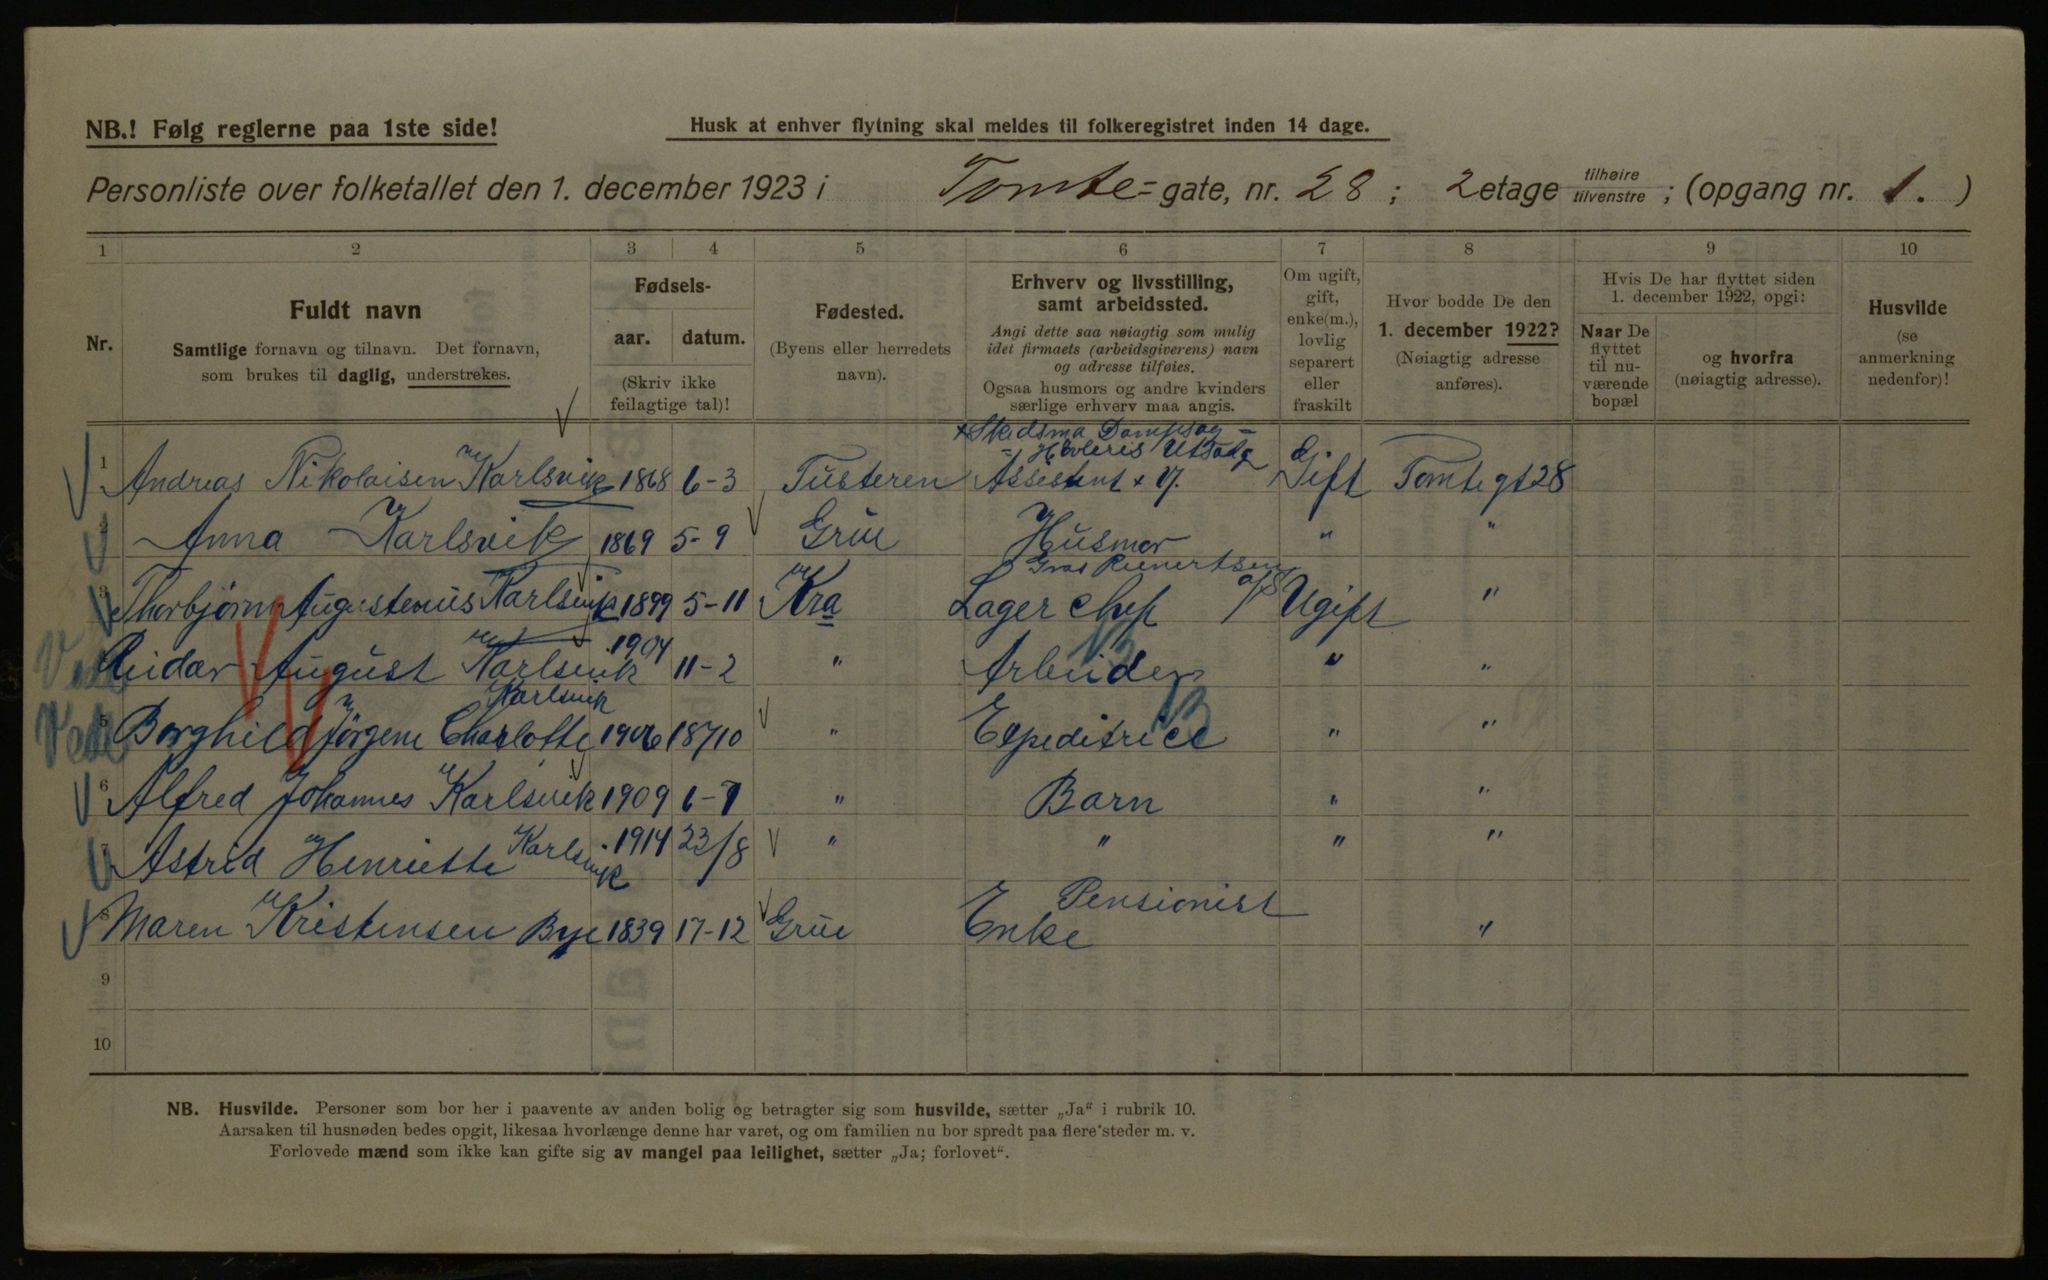 NB.! Følg reglerne paa 1ste side!
Husk at enhver flytning skal meldes til folkeregistret inden 14 dage.
Personliste over folketallet den 1. december 1923 i Tomte=gate, nr. 28; 2 etage tilhøire tilvenstre; (opgang nr. 1.)
1 2 3 4 5 6 7 8 9 10
Nr.
Fuldt navn
Samtlige fornavn og tilnavn. Det fornavn,
som brukes til daglig, understrekes.
Fødsels-
aar. datum.
(Skriv ikke
feilagtige tal)!
Fødested.
(Byens eller herredets
navn).
Erhverv og livsstilling,
samt arbeidssted.
Angi dette saa nøiagtig som mulig
idet firmaets (arbeidsgiverens) navn
og adresse tilføies.
Ogsaa husmors og andre kvinders
særlige erhverv maa angis.
Om ugift,
gift,
enke(m.),
lovlig
separert
eller
fraskilt
Hvor bodde De den
1. december 1922?
(Nøiagtig adresse
anføres).
Hvis De har flyttet siden
1. december 1922, opgi:
Naar De
flyttet
til nu-
værende
bopæl
og hvorfra
(nøiagtig adresse).
Husvilde
(se
anmerkning
nedenfor)!
x Skedsmo Dampsag =
= Høvleris Utsalg
1 Andreas Nikolaisen Karlsvik 1868 6-3 Tusteren Assistent x Gift Tomtegt 28
2 Anna Karlsvik 1869 5-9 Grue Husmor " "
3 Thorbjørn Augustenius Karlsvik 1899 5-11 Kra Lager chef a/s Ugift "
Reidar August Karlsvik 1904 11-2 " Arbeider " "
Karlsvik
5 Borghild Jørgene Charlotte 1906 18/10 " Expeditrice " "
6 Alfred Johannes Karlsvik 1909 6-7 " Barn " "
7 Astrid Henriette Karlsvik 1914 23/8 " " " "
Pensionist
8 Maren Kristensen Bye 1839 17-12 Grue Enke "
9
10
NB. Husvilde. Personer som bor her i paavente av anden bolig og betragter sig som husvilde, sætter „Ja“ i rubrik 10.
Aarsaken til husnøden bedes opgit, likesaa hvorlænge denne har varet, og om familien nu bor spredt paa flere steder m. v.
Forlovede mænd som ikke kan gifte sig av mangel paa leilighet, sætter „Ja; forlovet“.